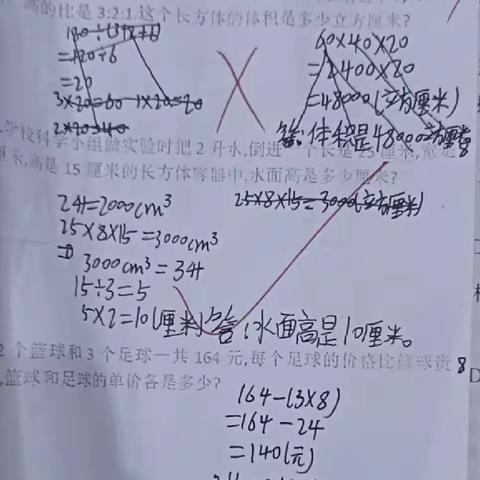 高的比是3:2:1.这个长方体的体积是多少立方厘米?
120÷(3+2+1)
=120÷6
=20
3×20=60 1×20=20
2×20=40
60×40×20
=2400×20
=48000(立方厘米)
答:体积是48000立方厘米
学校科学小组做实验时把2升水,倒进一个长是25厘米,宽是8
厘米,高是15厘米的长方体容器中,水面高是多少厘米?
2升=2000cm³
25×8×15=3000cm³
3000cm³=3升
15÷3=5
5×2=10(厘米)
25×8×15=3000(立方厘米)
答:水面高是10厘米。
2个篮球和3个足球一共164元,每个足球的价格比篮球贵8
,篮球和足球的单价各是多少?
164-(3×8)
=164-24
=140(元)